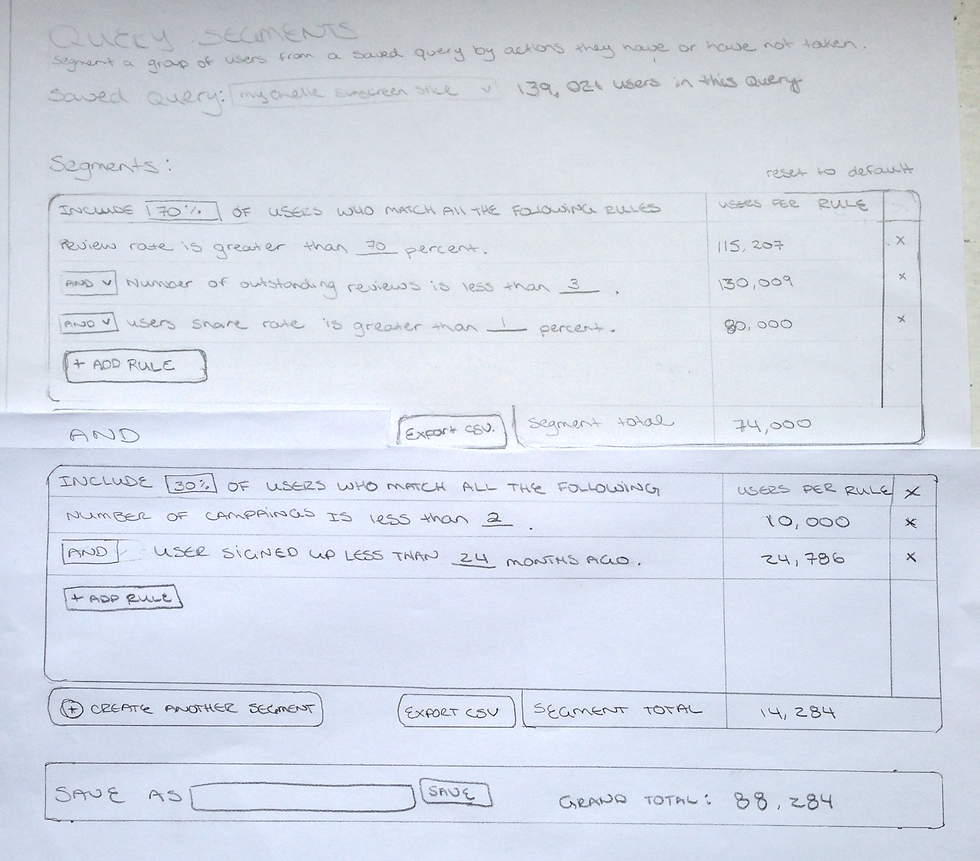 QUERY SEGMENTS
Segment a group of users from a saved query by actions they have or have not taken.
Saved Query: mychelle sunscreen v 139,021 users in this query
Segments:
reset to default
INCLUDE 70% OF USERS WHO MATCH All THE FOllOWING RULES USERS PER RULE
Review rate is greater than 70 percent. 115,207 x
AND v Number of outstanding reviews is less than 3. 130,009 x
AND v users share rate is greater than 1 percent. 80,000 x
+ ADD RULE
Export CSV. Segment total 74,000
AND
INCLUDE 30% OF USERS WHO MATCH ALL THE FOLLOWING USERS PER RULE x
NUMBER OF CAMPAINGS IS less than 2. 10,000 x
AND USER SIGNED UP LESS THAN 24 MONTHS AGO. 24,786 x
+ ADD RULE
+ CREATE ANOTHER SEGMENT EXPORT CSV SEGMENT TOTAL 14,284
SAVE AS SAVE GRAND TOTAL: 88,284